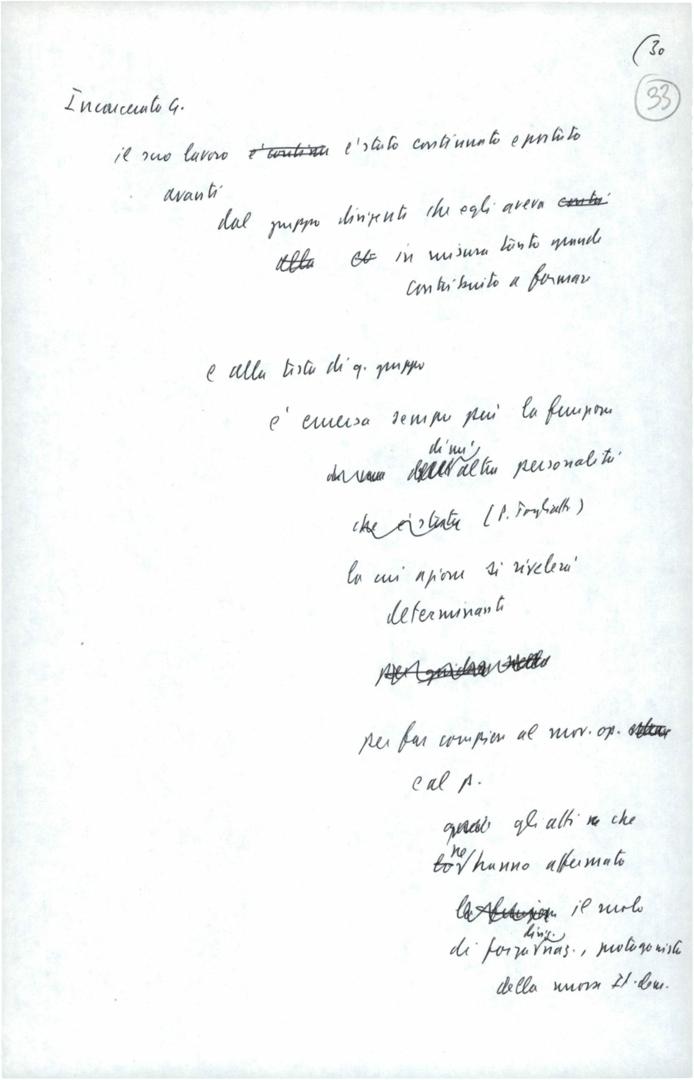 (30
33
Incarcerato G.
il suo lavoro è contin è stato continuato e portato
avanti
dal gruppo dirigente che egli aveva contri
alla in misura tanto grande
contribuito a formare
e alla testa di q. gruppo
è emersa sempre più la funzione
di un'
altra personalità
che è stata (P. Togliatti)
la cui azione si rivelerà
determinante
per far compiere al mov. op.
e al p.
quegli alti che
ne
hanno affermato
la funzione il ruolo
dirig.
di forza naz., protagonista
della nuova It. dem.